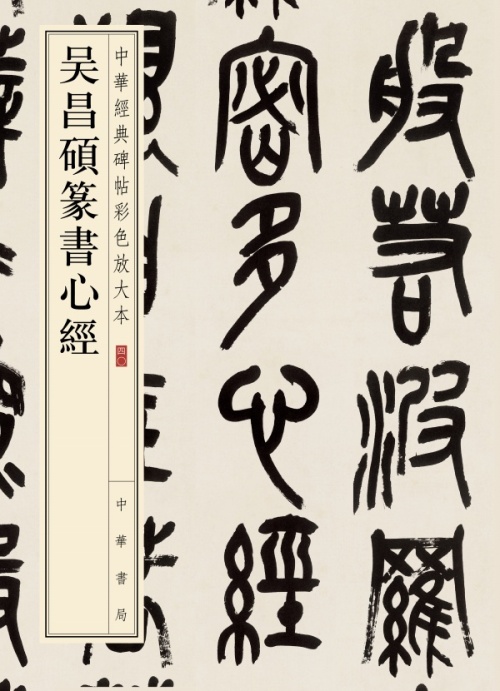 吴昌碩篆書心經
中華經典碑帖彩色放大本
四〇
中華書局
般若波羅
蜜多心經